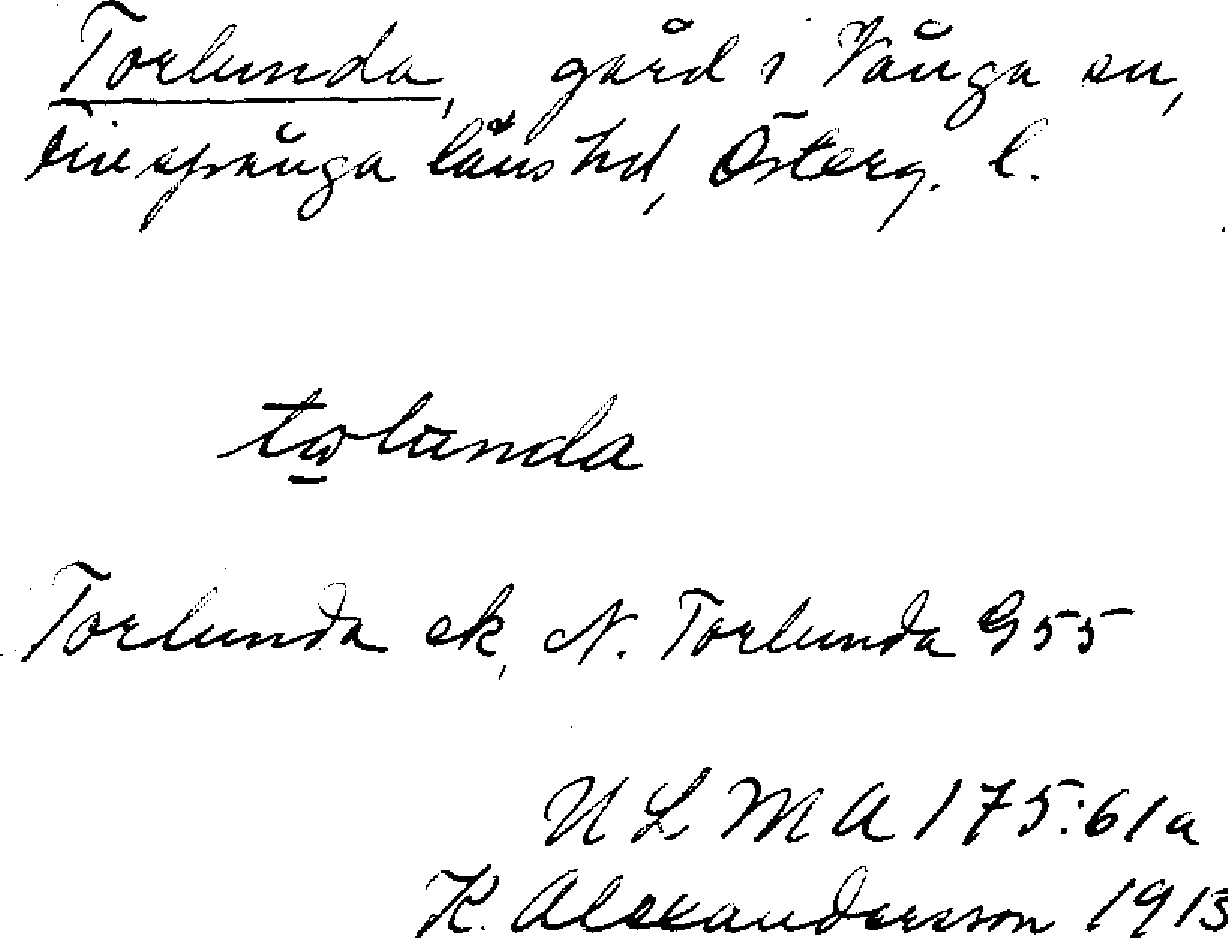 Torlunda, gård i Vånga sn,
Finspånga läns hd, Österg. l.
Torlunda ek, N. Torlunda G55
ULMA 175:61a
K. Alexandersson 1913